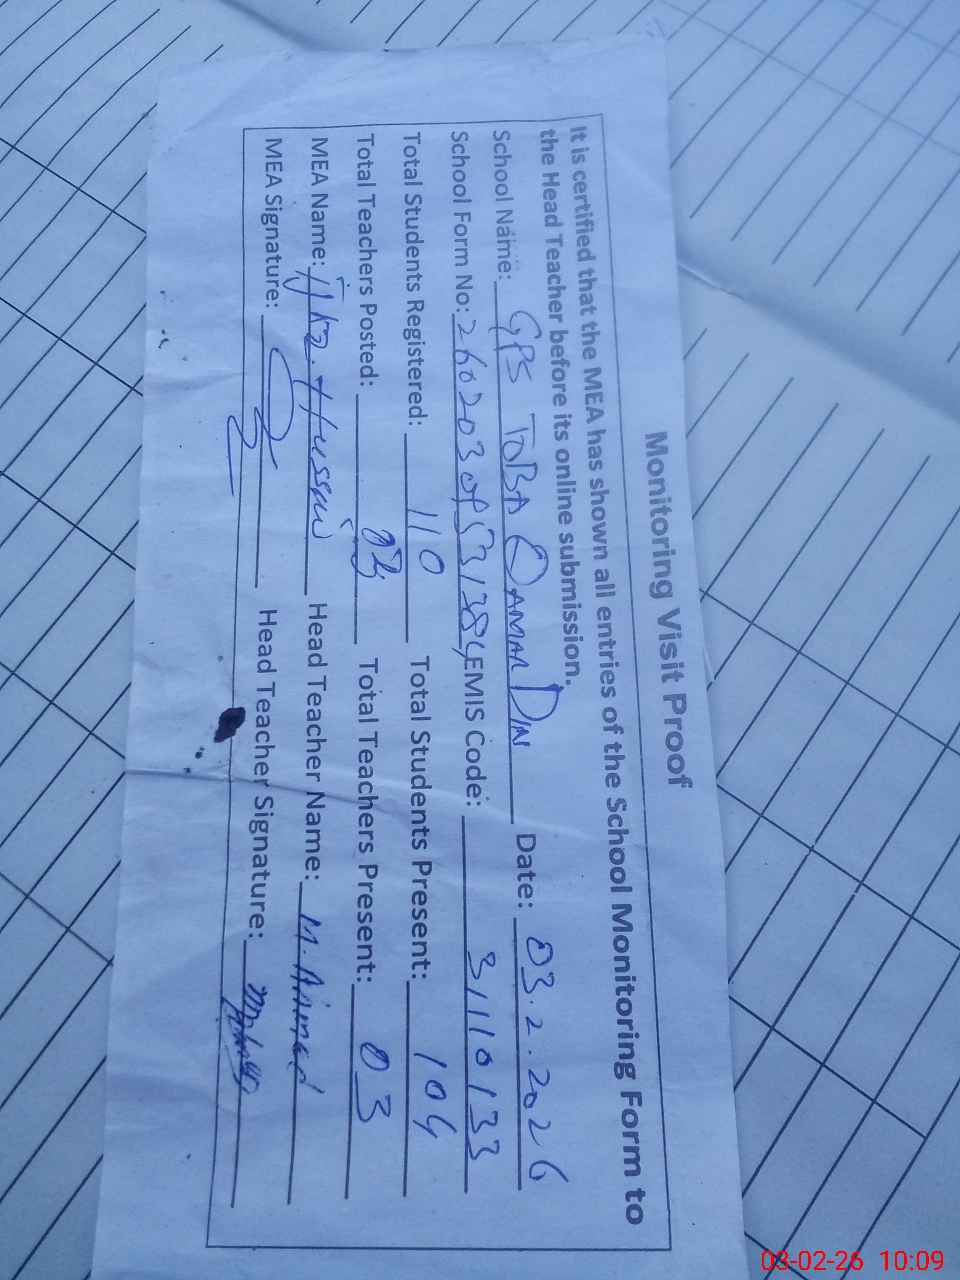 Monitoring Visit Proof
It is certified that the MEA has shown all entries of the School Monitoring Form to
the Head Teacher before its online submission.
School Name: GPS TOBA QAMAR DIN Date: 03.2.2026
School Form No: EMIS Code: 31110133
Total Students Registered: 110 Total Students Present: 104
Total Teachers Posted: 03 Total Teachers Present: 03
MEA Name: Hussain Head Teacher Name: M. Ahmad
MEA Signature: Head Teacher Signature:
03-02-26 10:09